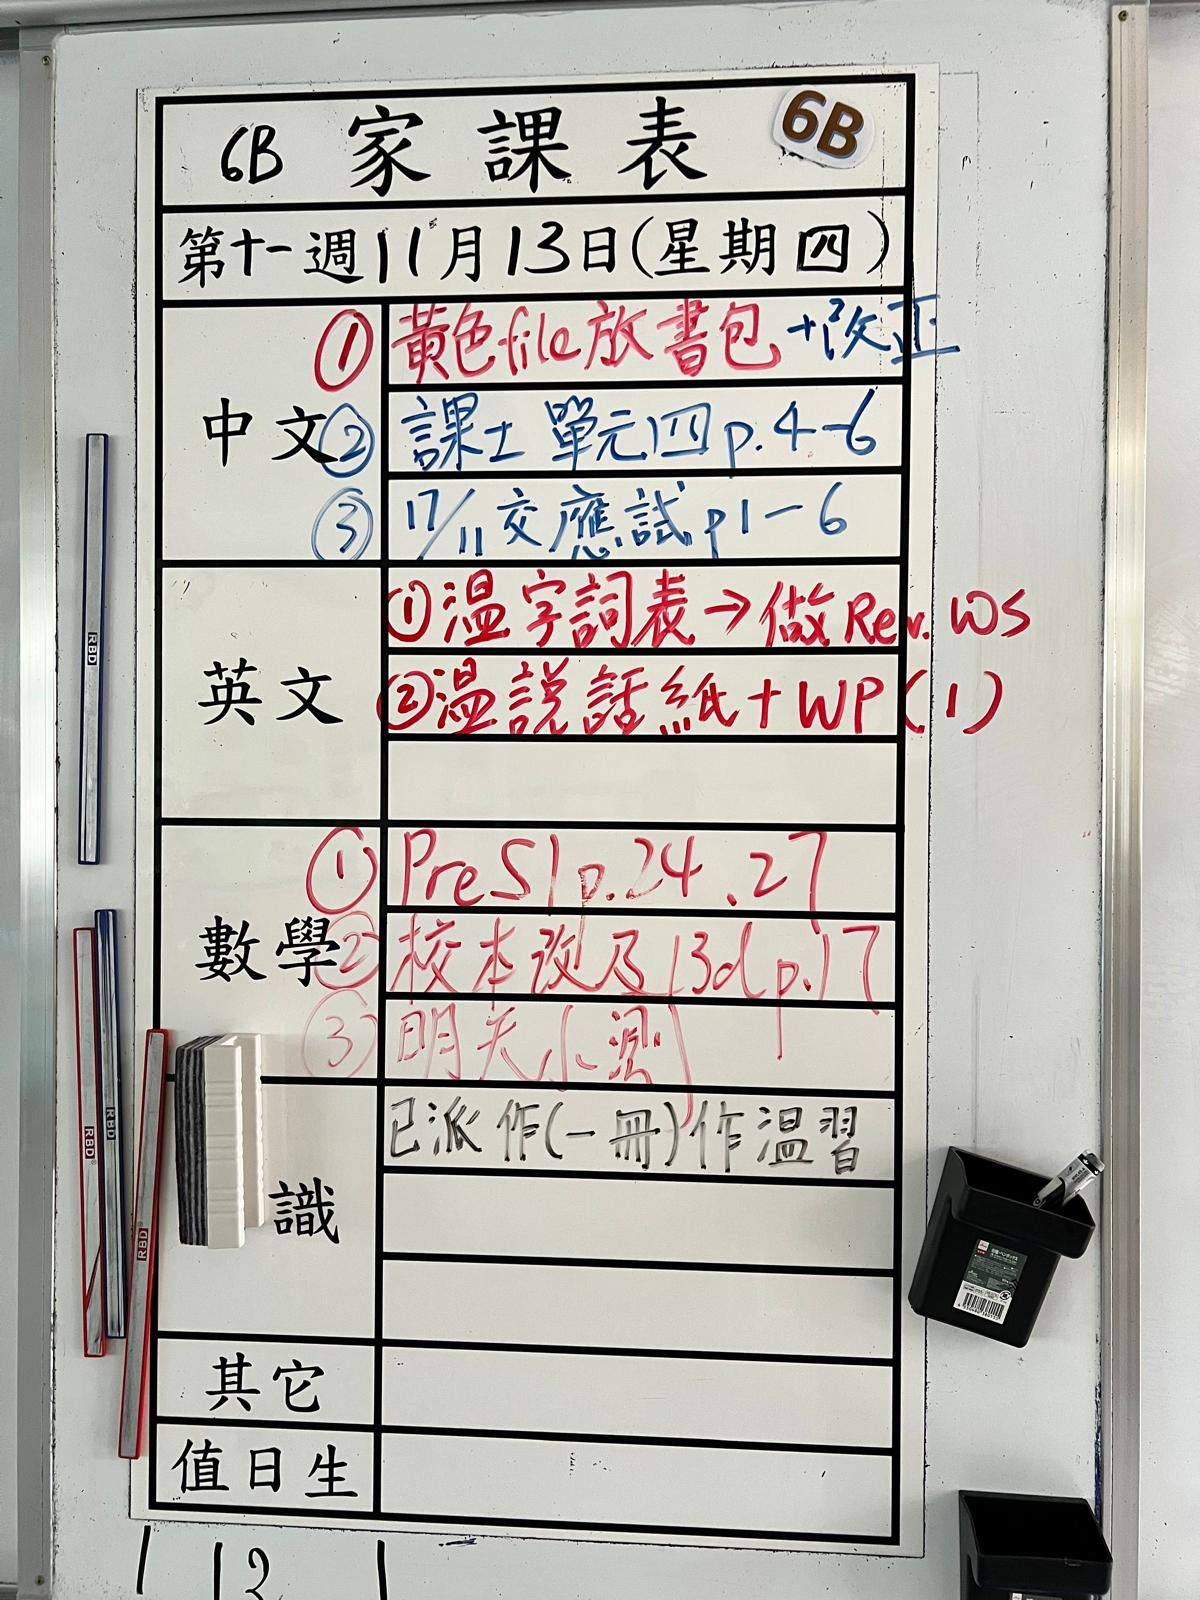 6B 家課表 6B
第十一週11月13日(星期四)
中文
① 黃色file放書包 +²改正
② 課士 單元四 p.4-6
③ 17/11交應試p1-6
英文
①溫字詞表→做Rev. WS
②溫説話紙+WP(1)
數學
① PreS1 p.24、27
② 校本改及13d p.17
③ 明天小測
識
已派作(一冊)作溫習
其它
值日生
RBD
RBD
RBD
RBD
12